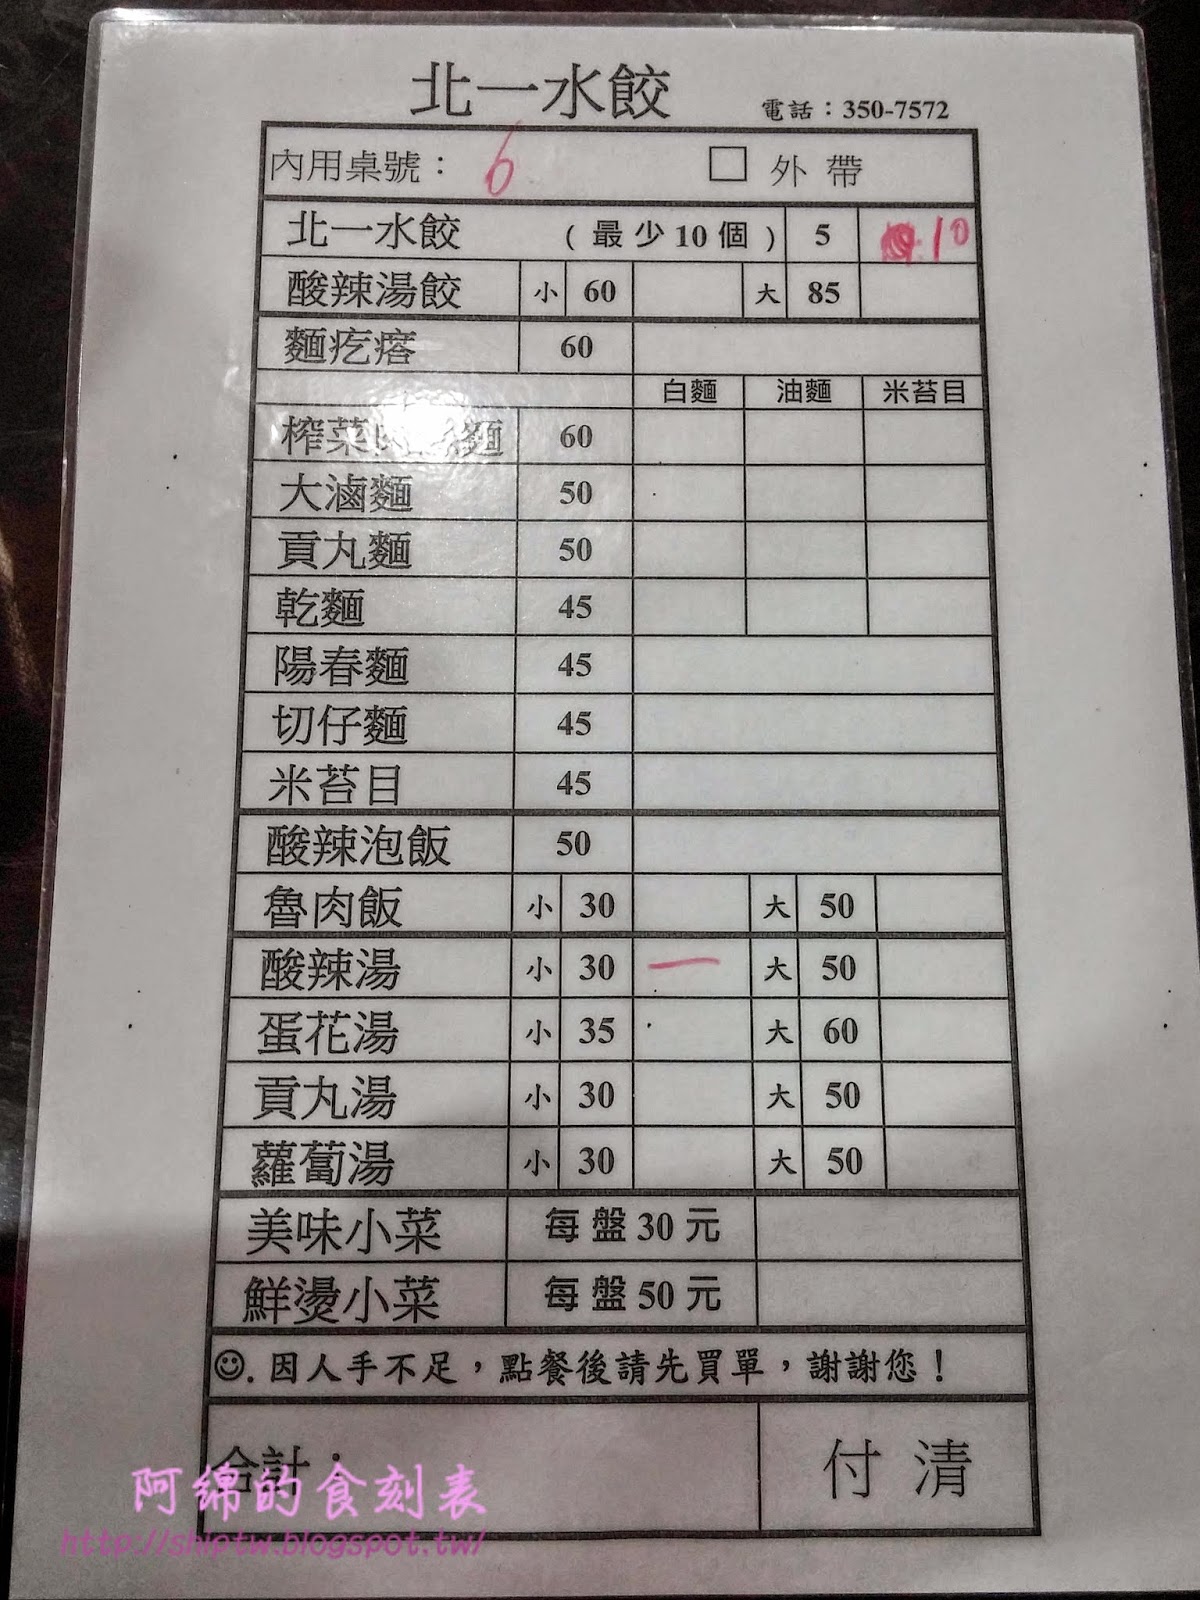 北一水餃 電話：350-7572
內用桌號： 6 □ 外 帶
北一水餃 （最少10個） 5 10
酸辣湯餃 小 60 大 85
麵疙瘩 60
白麵 油麵 米苔目
榨菜 麵 60
大滷麵 50
貢丸麵 50
乾麵 45
陽春麵 45
切仔麵 45
米苔目 45
酸辣泡飯 50
魯肉飯 小 30 大 50
酸辣湯 小 30 一 大 50
蛋花湯 小 35 大 60
貢丸湯 小 30 大 50
蘿蔔湯 小 30 大 50
美味小菜 每盤30元
鮮燙小菜 每盤50元
☺. 因人手不足，點餐後請先買單，謝謝您！
合計： 付 清
阿綿的食刻表
http://shiptw.blogspot.tw/